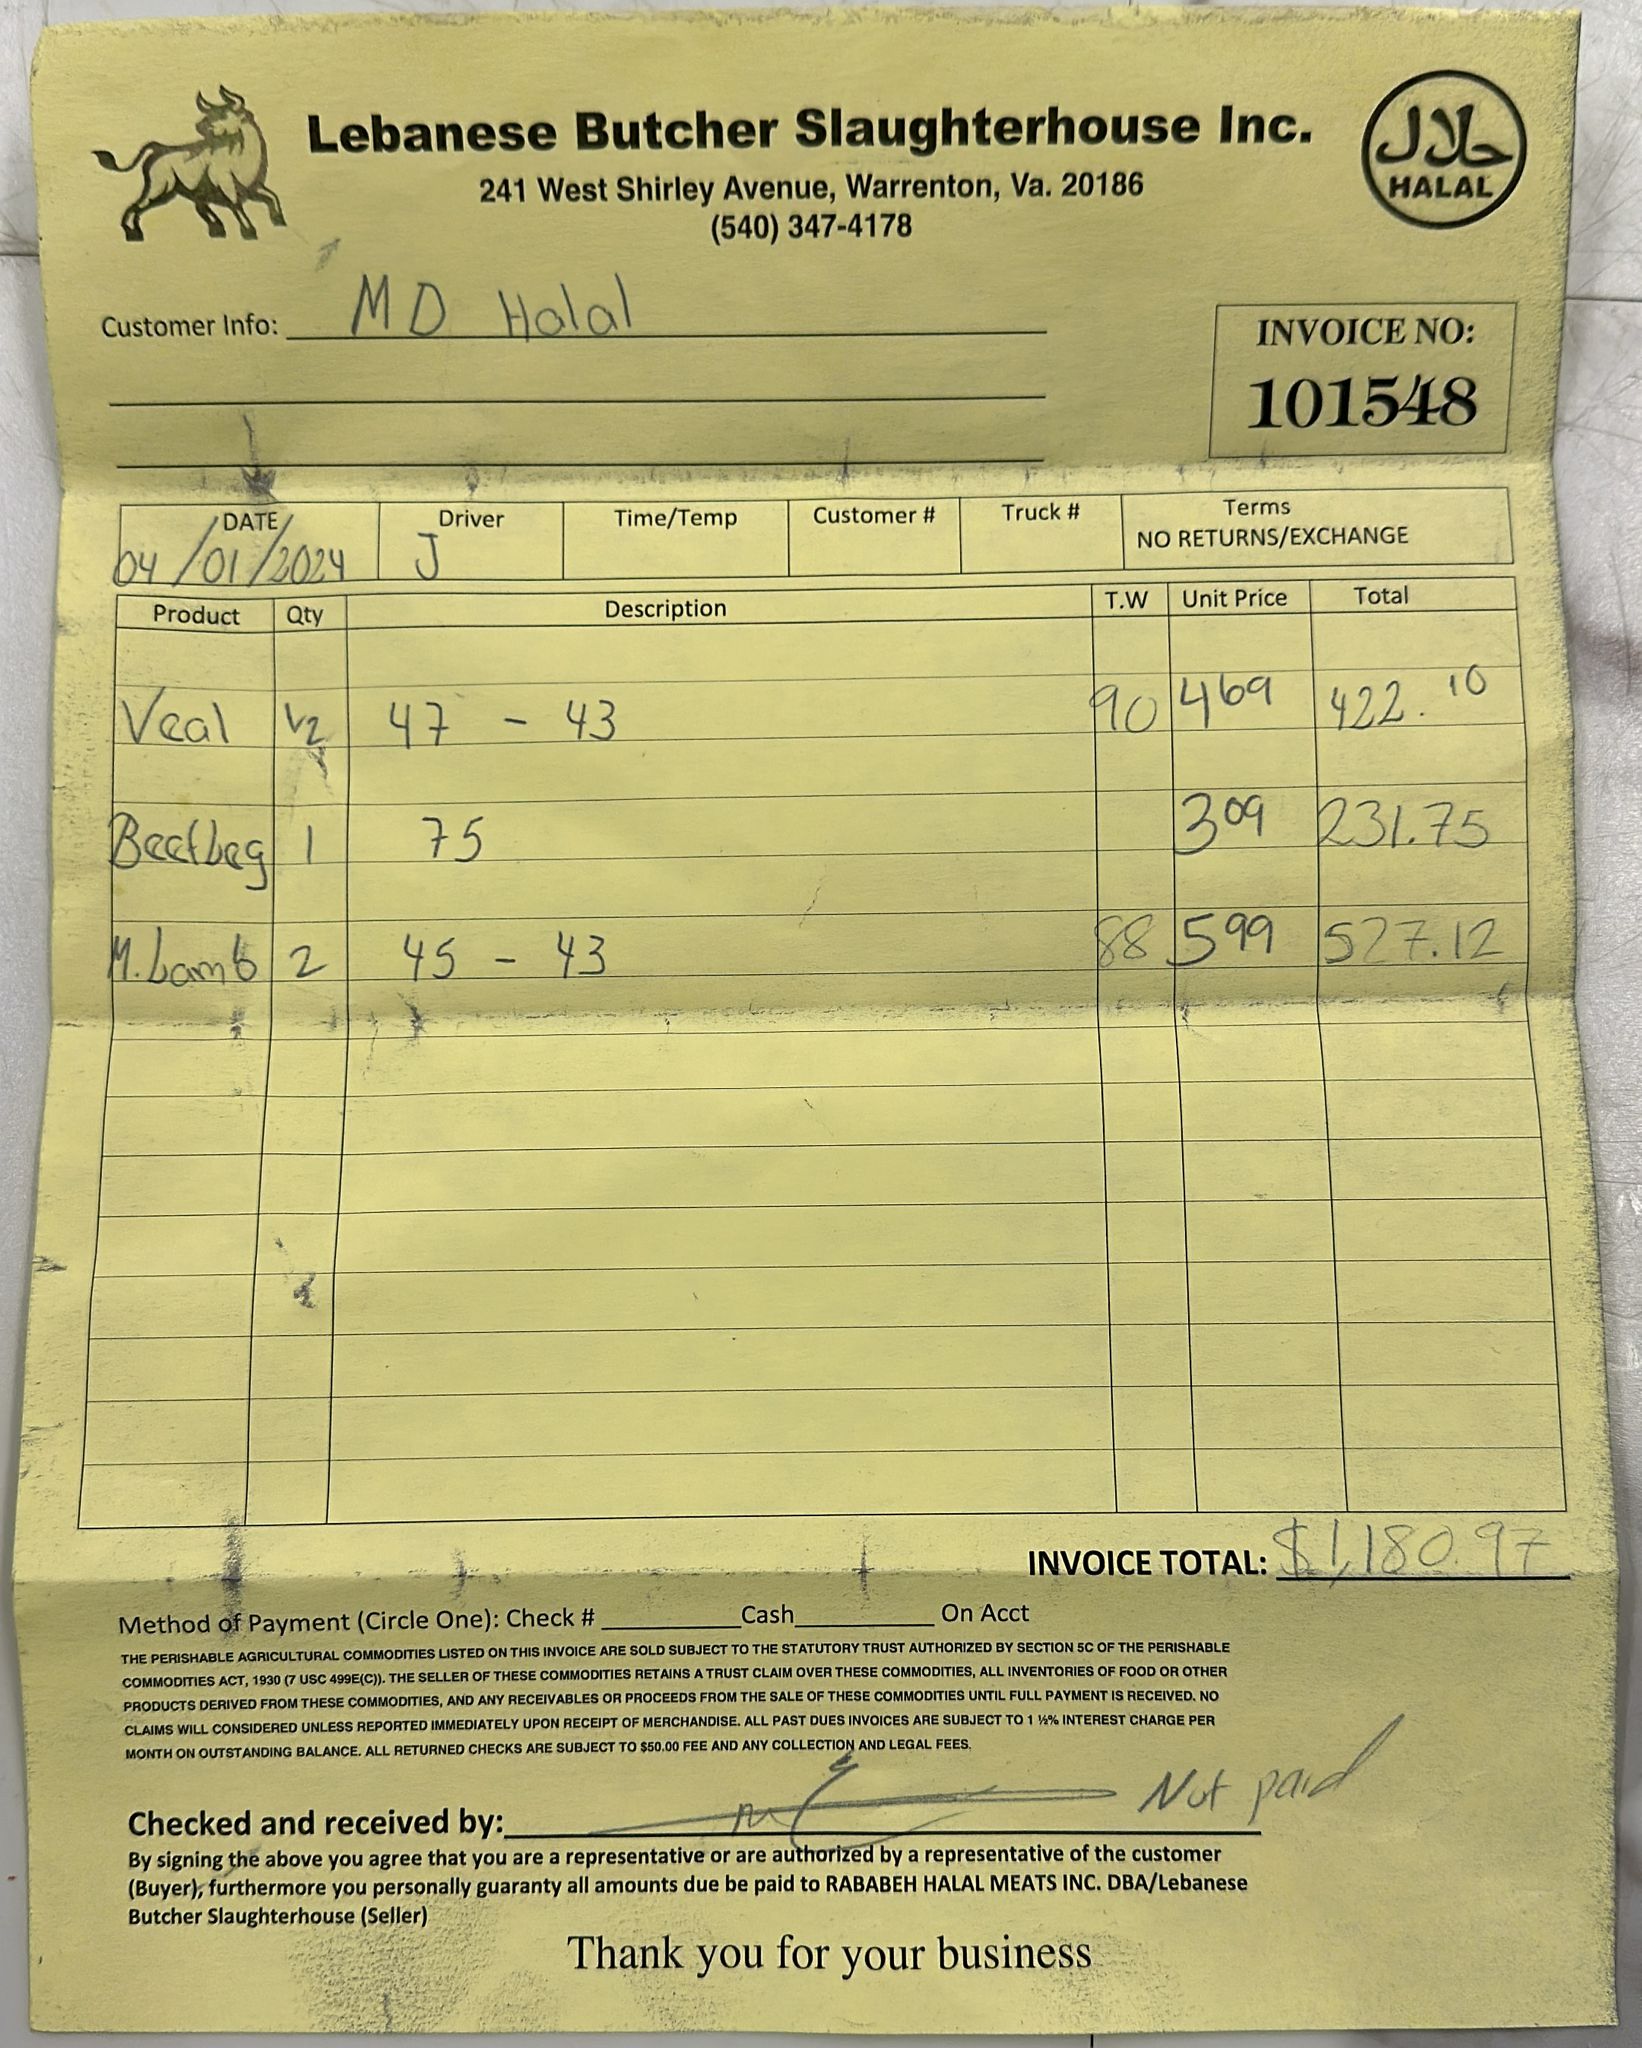 Lebanese Butcher Slaughterhouse Inc.
241 West Shirley Avenue, Warrenton, Va. 20186
(540) 347-4178
حلال
HALAL
Customer Info: MD Halal
INVOICE NO:
101548
DATE Driver Time/Temp Customer # Truck # Terms
04/01/2024 J NO RETURNS/EXCHANGE
Product Qty Description T.W Unit Price Total
Veal 1/2 47 - 43 90 469 422.10
Beefleg 1 75 309 231.75
M.Lamb 2 45 - 43 88 599 527.12
INVOICE TOTAL: $1,180.97
Method of Payment (Circle One): Check # Cash On Acct
THE PERISHABLE AGRICULTURAL COMMODITIES LISTED ON THIS INVOICE ARE SOLD SUBJECT TO THE STATUTORY TRUST AUTHORIZED BY SECTION 5C OF THE PERISHABLE
COMMODITIES ACT, 1930 (7 USC 499E(C)). THE SELLER OF THESE COMMODITIES RETAINS A TRUST CLAIM OVER THESE COMMODITIES, ALL INVENTORIES OF FOOD OR OTHER
PRODUCTS DERIVED FROM THESE COMMODITIES, AND ANY RECEIVABLES OR PROCEEDS FROM THE SALE OF THESE COMMODITIES UNTIL FULL PAYMENT IS RECEIVED. NO
CLAIMS WILL CONSIDERED UNLESS REPORTED IMMEDIATELY UPON RECEIPT OF MERCHANDISE. ALL PAST DUES INVOICES ARE SUBJECT TO 1 ½% INTEREST CHARGE PER
MONTH ON OUTSTANDING BALANCE. ALL RETURNED CHECKS ARE SUBJECT TO $50.00 FEE AND ANY COLLECTION AND LEGAL FEES.
Checked and received by: Not paid
By signing the above you agree that you are a representative or are authorized by a representative of the customer
(Buyer), furthermore you personally guaranty all amounts due be paid to RABABEH HALAL MEATS INC. DBA/Lebanese
Butcher Slaughterhouse (Seller)
Thank you for your business